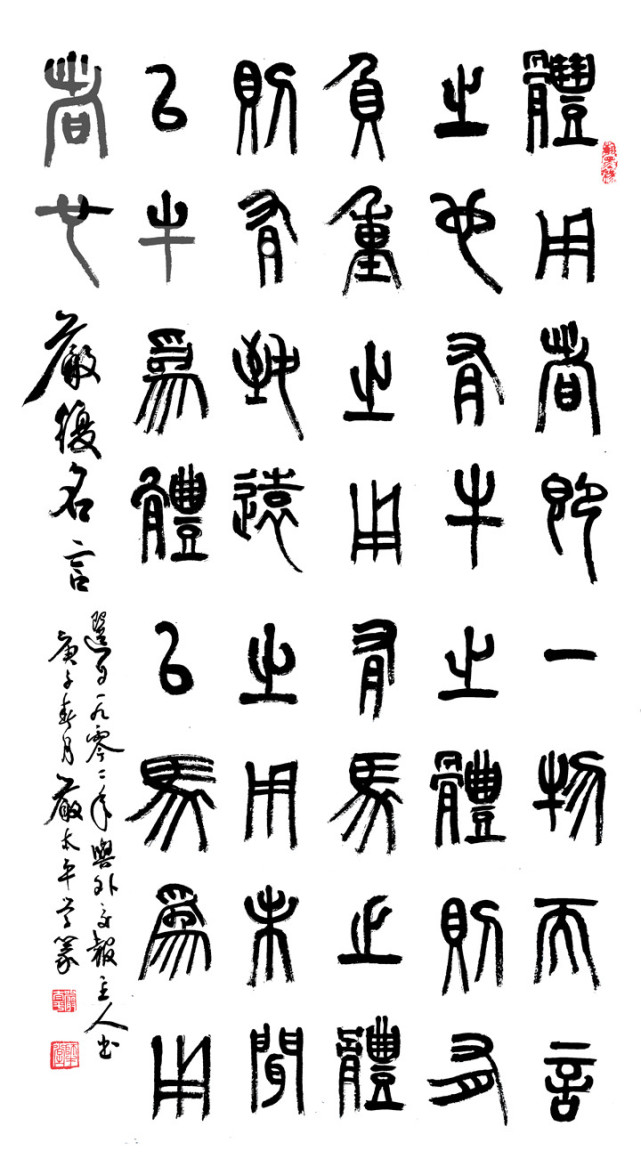 體用者即一物而言
之也有牛之體則有
負重之用有馬之體
則有致遠之用未聞
以牛為體以馬為用
者也
嚴復名言
選自一九零二年與外交報主人書
庚子春月嚴太平学篆